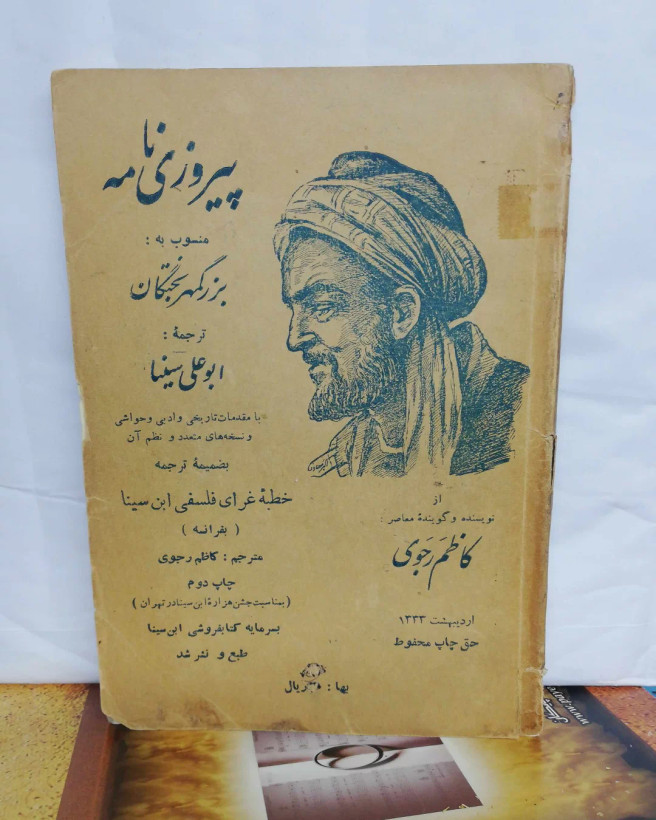 پیروزی نامه
منسوب به :
بزرگمهر بختگان
ترجمهٔ :
ابو علی سینا
با مقدمات تاریخی و ادبی و حواشی
و نسخه‌های متعدد و نظم آن
بضمیمهٔ ترجمه
خطبهٔ غرای فلسفی ابن سینا
( بفرانسه )
مترجم : کاظم رجوی
چاپ دوم
( بمناسبت جشن هزارهٔ ابن سینا در تهران )
بسرمایه کتابفروشی ابن سینا
طبع و نشر شد
از
نویسنده و گویندهٔ معاصر :
کاظم رجوی
اردیبهشت ۱۳۳۳
حق چاپ محفوظ
بها : ریال